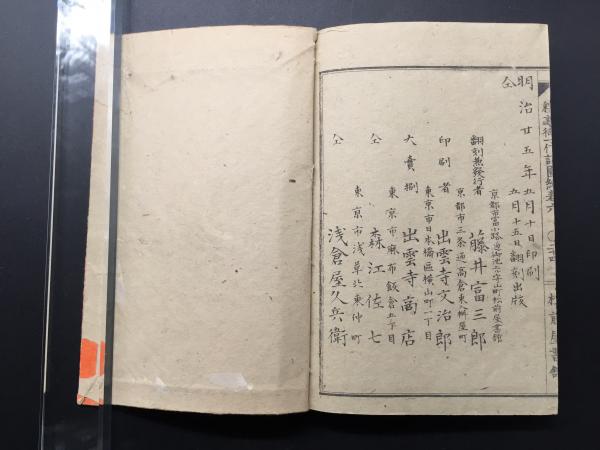 明治廿五年五月十日印刷
仝　五月十五日翻刻出版
翻刻兼發行者　藤井富三郎
京都市三条通高倉東桝屋町
印刷者　出雲寺文治郎
東京市日本橋區横山町一丁目
大賣捌　出雲寺商店
東京市麻布飯倉五丁目
仝　森江佐七
東京市浅草北東仲町
仝　浅倉屋久兵衛